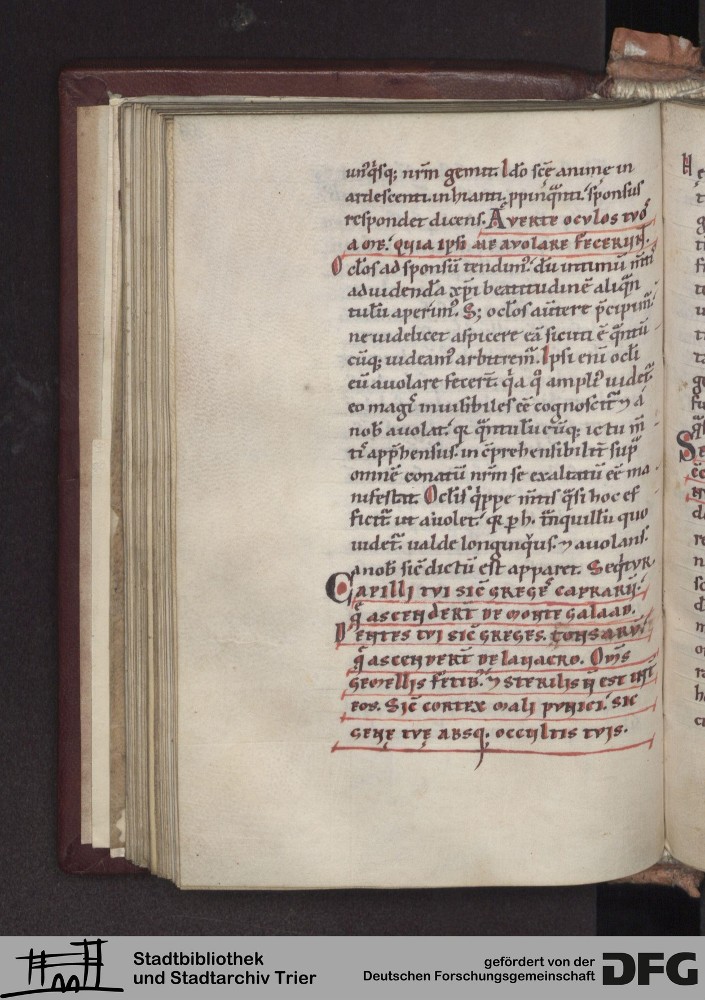 unꝰq̇sq; nr̄m gemit. Ido sc̄e anime in
ardescenti. in hianti. ppinq̄nti. sponsus
respondet dicens. Averte ocvlos tvos̄
a me. qvia ipsi me avolare fecervn̄.
Oc̄los ad sponsū tendimꝰ. dū intimū m̄tis
ad uidenda xp̄i beatitudinē aliq̄n
tulū aperimꝰ. S; oc̄los au̅tere p̄cipimꝰ.
ne uidelicet aspicere eā sicuti ē q̄ntū
cūq; uideamꝰ arbitrem̄. Ipsi eni oc̄li
eū auolare fecer̄t. q̇a q̊ ampliꝰ uidet̄.
eo magꝭ inuisibiles eē cognoscit̄ ⁊ a
nob̄ auolat. qꝛ q̄ntulūcūq; ictu m̄
tiꝭ app̄hensus. in cp̄rehensibilit̄ sup̄
omnē conatū nr̄m se exaltatū eē ma
nifestat. Oc̄lis q̇ppe m̄tis q̇si hoc ef
ficit̄ ut auolet. qꝛ p h. t̄nquillū quo
uidet̄. ualde longinq̇us. ⁊ auolans.
a nob̄ sic̄ dictū est apparet. Seqvitvr.
Capilli tvi sic̄ greges̄ caprarū.
q̄ ascendervn̄t de monte galaad.
Dentes tvi sic̄ greges. tonsarū.
q̄ ascendervn̄t de lavacro. Om̄s
gemellis fetibꝰ. ⁊ sterilis n̄ est int̄
eos. Sic̄ cortex mali pvnici. sic
genę tvę absq. occvltis tvis.
Stadtbibliothek
und Stadtarchiv Trier
gefördert von der
Deutschen Forschungsgemeinschaft
DFG